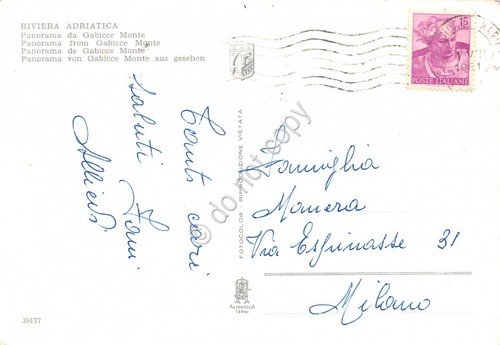 RIVIERA ADRIATICA
Panorama da Gabicce Monte
Panorama from Gabicce Monte
Panorama de Gabicce Monte
Panorama von Gabicce Monte aus gesehen
15
POSTE ITALIANE
Tanti cari
saluti
FOTOCOLOR - RIPRODUZIONE VIETATA
© do not copy
Famiglia
Manera
Via Espinasse 31
Milano
ALTEROCCA
TERNI
39177